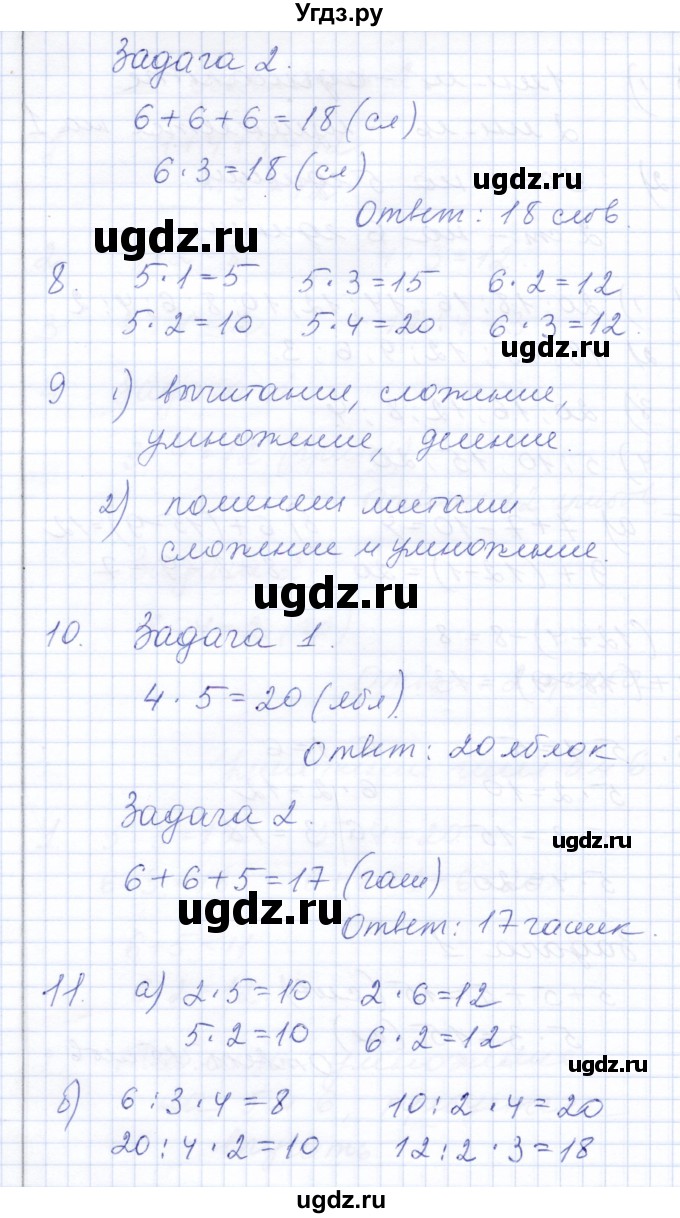 Угдз.ру
Задача 2.
6+6+6=18 (сл)
6·3=18 (сл)
ugdz.ru
Ответ: 18 слов.
ugdz.ru
8. 5·1=5 5·3=15 6·2=12
5·2=10 5·4=20 6·3=12.
ugdz.ru
9 1) вычитание, сложение,
умножение, деление.
2) поменяем местами
сложение и умножение.
ugdz.ru
10. Задача 1.
4·5=20 (ябл).
Ответ: 20 яблок.
Задача 2.
ugdz.ru
6+6+5=17 (чаш)
ugdz.ru
Ответ: 17 чашек.
11. а) 2·5=10 2·6=12
5·2=10 6·2=12
ugdz.ru
б) 6:3·4=8 10:2·4=20
20:4·2=10 12:2·3=18
ugdz.ru